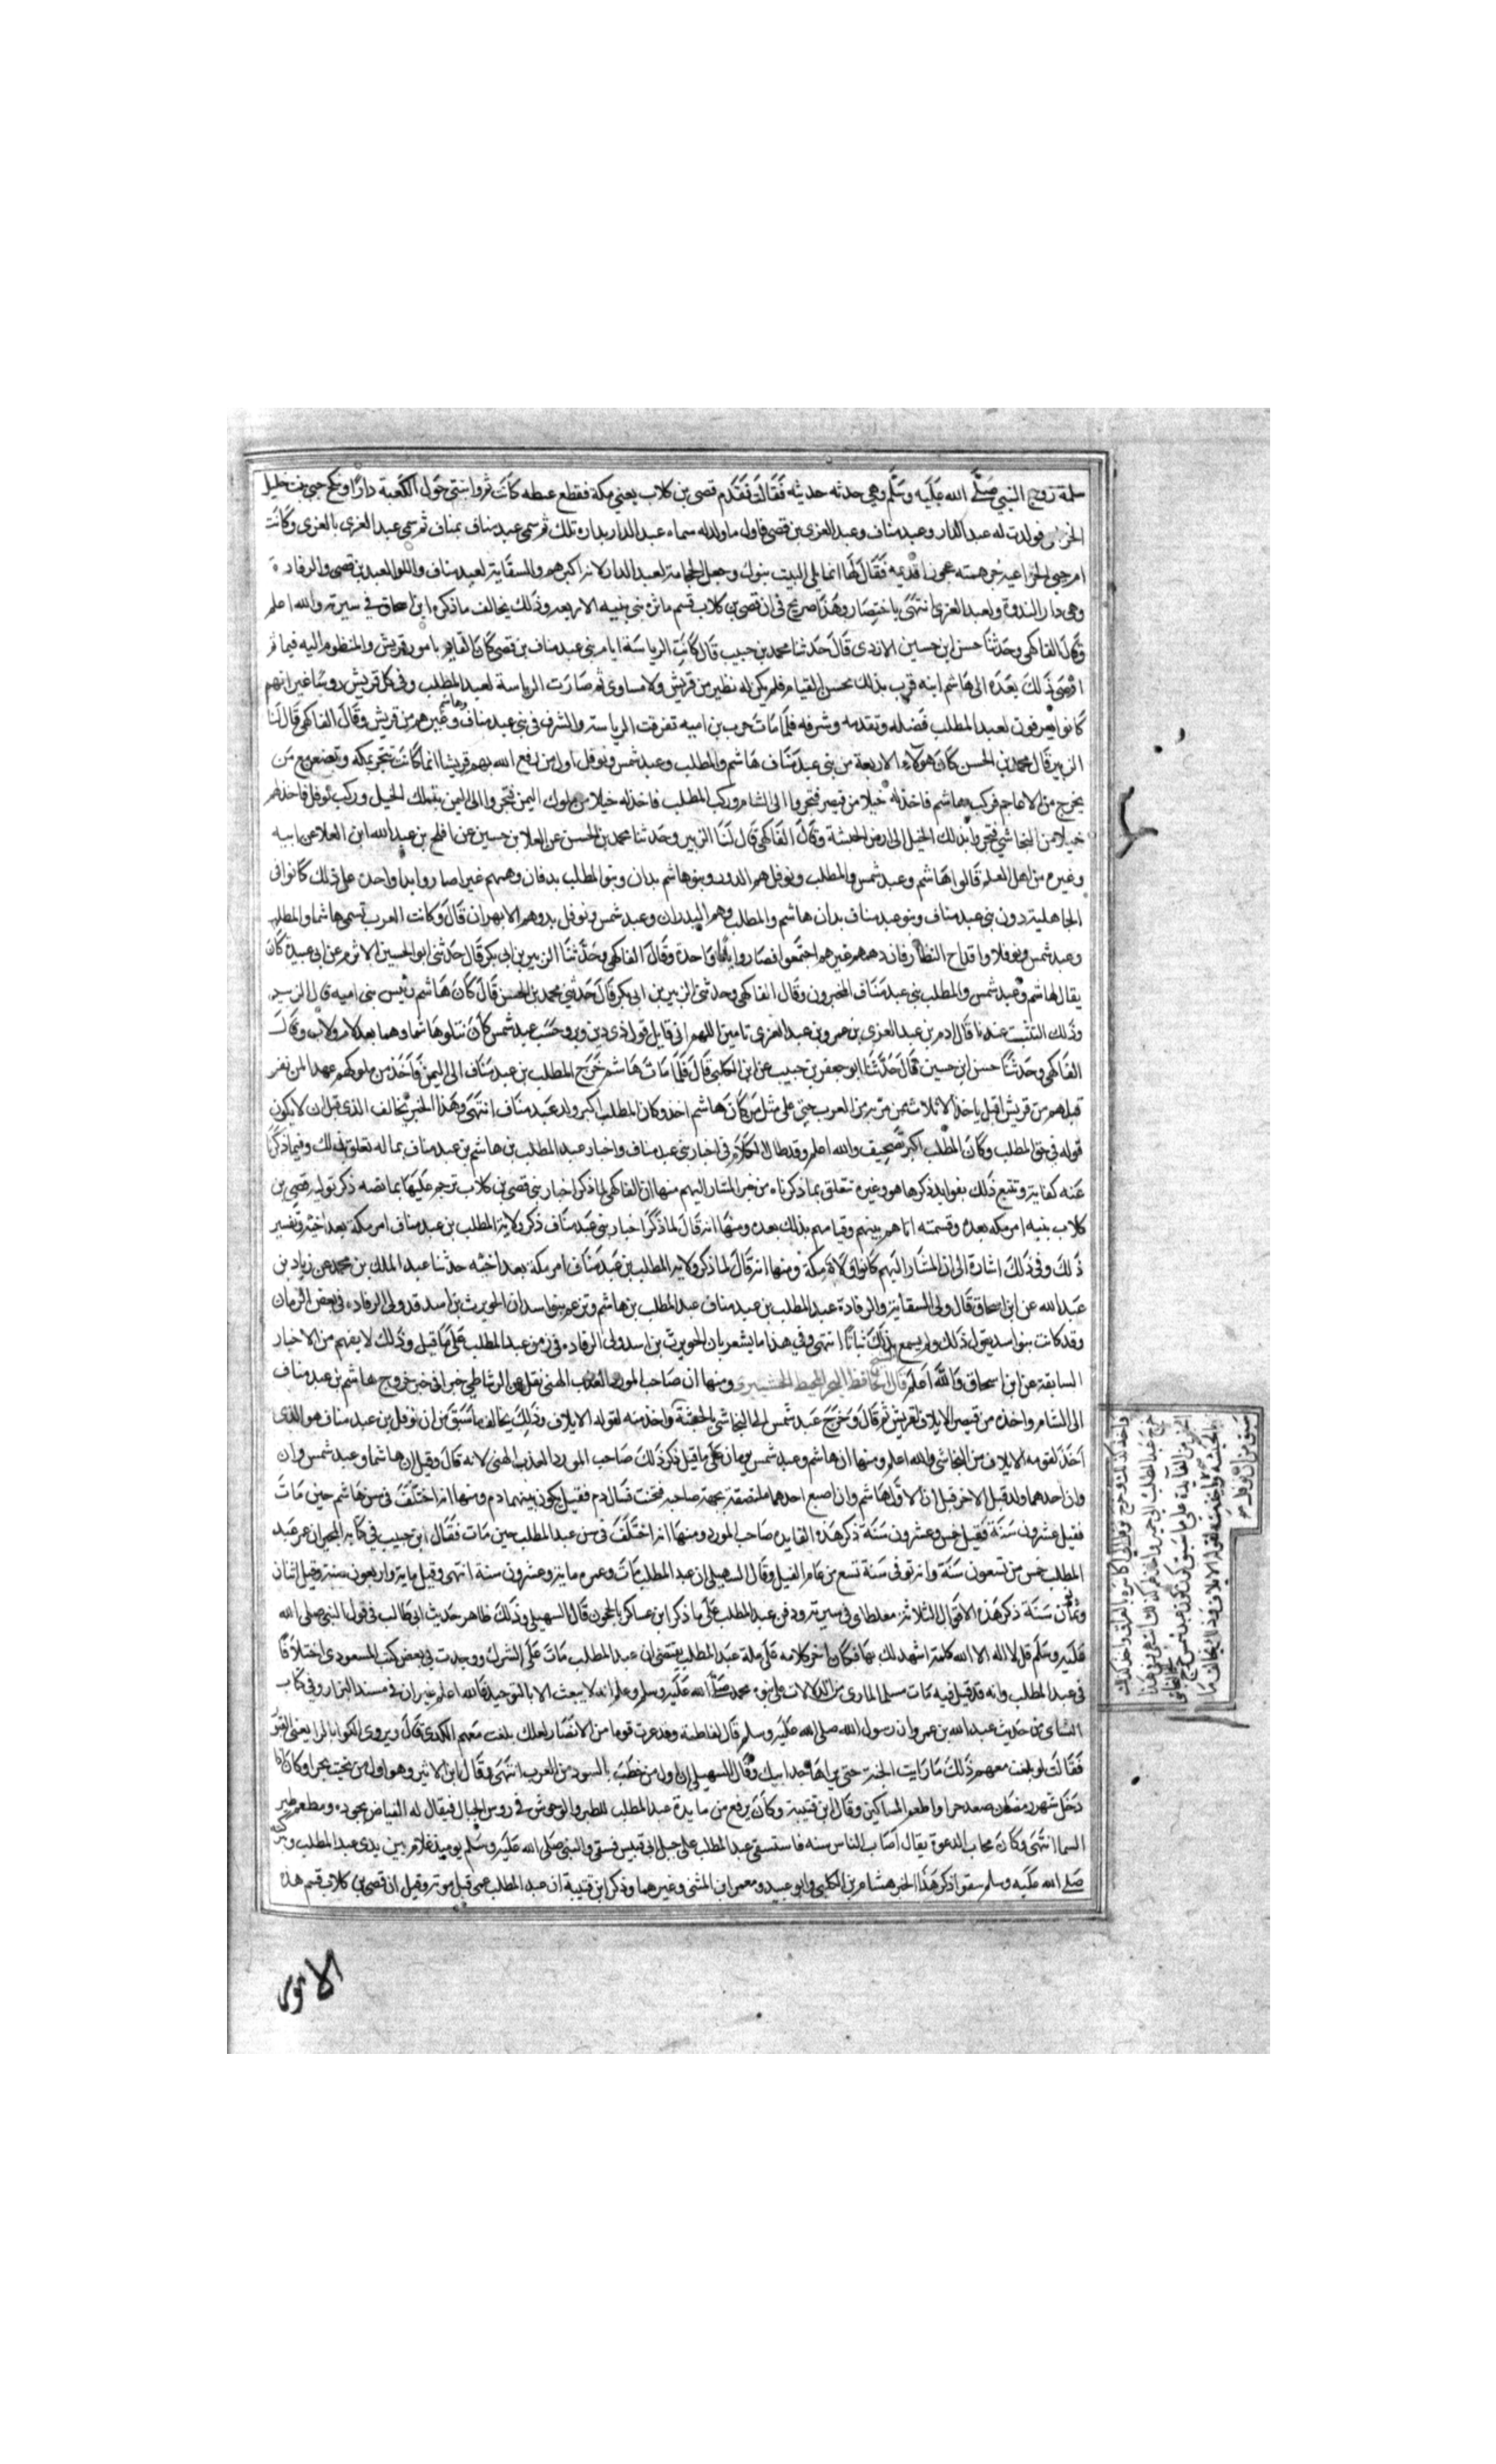 سلمة زوج النبي صلى الله عليه وسلم وهي حدثه حديثه فقالت فقدم قصى بن كلاب يعني مكة فقطع غيطه كانت ثم ابتنى حول الكعبة دارا ونكح حبى بنت خليل
فولدت له عبد الدار وعبد مناف وعبد العزى بن قصى فاول ما ولد له سماه عبد الدار بداره تلك ثم سمى عبد مناف بمناف ثم سمى عبد العزى بالعزى وكانت
ام حبي الخزاعيه فقال لها انما يلي البيت بنوك وجعل الحجابة لعبد الدار لانه اكبرهم والسقاية لعبد مناف واللوا لعبد بن قصى والرفادة
وهي دار الندوة ولعبد العزى انتهى باختصار وهذا صريح في ان قصى بن كلاب قسم ماثره بني بنيه الاربعه وذلك يخالف ما ذكره ابن اسحاق في سيرته والله اعلم
وقال الفاكهي وحدثنا حسن ابن حسين الازدى قال حدثنا محمد بن حبيب قال كانت الرياسة ايام بني عبد مناف بن قصى كان القايم بامور قريش والمنظور اليه فيها ثم
افضى ذلك بعده الى هاشم ابنه قرب بذلك بحسن القيام فلم يكن له نظير من قريش ولا مساوى ثم صارت الرياسة لعبد المطلب وفي كل قريش روسا غير انهم
كانوا يعرفون لعبد المطلب فضله وتقدمه وشرفه فلما مات حرب بن اميه تفرقت الرياسة والشرف في بني عبد مناف وغيرهم من قريش وقال الفاكهي قال لنا
الزبير قال محمد بن الحسن كان هولاء الاربعة من بني عبد مناف هاشم والمطلب وعبد شمس ونوفل اول من رفع الله بهم قريشا انما كانت تتجر بمكه وتبضع مع من
يخرج من الاعاجم فركب هاشم فاخذ له خيلا من قيصر فتجروا الى الشام وركب المطلب فاخذ له خيلا من ملوك اليمن فتجروا الى اليمن بتلك الخيل وركب نوفل فاخذ لهم
خيلا من النجاشي فتجروا بذلك الخيل الى ارض الحبشة وقال الفاكهي قال لنا الزبير وحدثنا محمد بن الحسن عن العلا بن حسين عن افلح بن عبد الله ابن العلا عن ابيه
وغيره من اهل العلم قالوا هاشم وعبد شمس والمطلب ونوفل هم
الجاهلية دون بني عبد مناف وبنو عبد مناف بدان هاشم والمطلب وهم البدران وعبد شمس ونوفل يد وهم الابهران قال وكانت العرب تسمى هاشما والمطلب
وعبد شمس ونوفلا واقداح النظار فاجتمعوا فصاروا واحدة وقال الفاكهي وحدثنا الزبير بن ابي بكر قال حدثني ابو الحسين الاثرم عن ابي عبيدة كان
يقال هاشم وعبد شمس والمطلب بني عبد مناف المجبرون وقال الفاكهي وحدثني الزبير بن ابي بكر قال حدثني محمد بن الحسن قال كان هاشم رئيس بني اميه قال الزبير
وذلك التثبت عندنا قال ادم بن عبد العزى بن عمرو بن عبد العزى وقال
الفاكهي وحدثنا حسن ابن حسين قال حدثنا ابو جعفر بن حبيب عن ابن الكلبي قال فلما مات هاشم خرج المطلب بن عبد مناف الى اليمن فاخذ من ملوكهم عهدا لمن تجر
قبلهم من قريش ثم اقبل ياخذ الايلاف ممن مر به من العرب حتى على مثل من كان هاشم اخذ وكان المطلب اكبر ولد عبد مناف انتهى وهذا الخبر يخالف الذى قبله ان لا يكون
قوله في حق المطلب وكان المطلب اكبر تصحيف والله اعلم وقد طال الكلام في اخبار بني عبد مناف واخبار عبد المطلب بن هاشم بن عبد مناف بما له تعلق بذلك وفيما ذكرنا
عنه كفاية وتتبع ذلك بفوايد ذكرها هو وغيره تتعلق بما ذكرناه من خبر المشار اليهم منها ان الفاكهي لما ذكر اخبار بني قصى بن كلاب ترجم عليها بما نصه ذكر توليه قصى بن
كلاب بنيه امر مكه بعده وقسمته اياها بينهم وقيامهم بذلك بعده ومنها انه قال لما ذكر اخبار بني عبد مناف ذكر ولاية المطلب بن عبد مناف امر مكه بعد اخيه وتفسير
ذلك وفي ذلك اشارة الى ان المشار اليهم كانوا ولاة مكة ومنها انه قال لما ذكر ولاية المطلب بن عبد مناف امر مكة بعد اخيه حدثنا عبد الملك بن محمد عن زياد بن
عبد الله عن ابن اسحاق قال ولى السقاية والرفادة عبد المطلب بن عبد مناف عبد المطلب بن هاشم وتزعم بنو اسد ان الحويرث بن اسد قد ولى الرفاده في بعض الزمان
وقد كانت بنو اسد يقول ذلك ولم يسمع بذلك ثباتا انتهى وفي هذا ما يشعر بان الحويرث بن اسد ولى الرفاده في زمن عبد المطلب على ما قيل وذلك لا يفهم من الاخبار
السابقة عن ابن اسحاق والله اعلم ومنها ان صاحب المورد العذب الهني نقل عن الرشاطي خبرا في خبر خروج هاشم بن عبد مناف
الى الشام واخذه من قيصر الايلاف لقريش ثم قال وخرج عبد شمس الى النجاشي بالحبشة واخذ منه لقومه الايلاف وذلك يخالف ما سبق من ان نوفل بن عبد مناف هو الذى
اخذ لقومه الايلاف من النجاشي والله اعلم ومنها ان هاشم وعبد شمس يومان على ما قيل ذكر ذلك صاحب المورد العذب الهني لانه قال وقيل ان هاشما وعبد شمس وان
وان احدهما ولد قبل الاخر قيل ان الاول هاشم وان اصبع احدهما ملتصقة بجبهة صاحبه فنحت فسال دم فقيل يكون بينهما دم ومنها انه اختلف في سن هاشم حين مات
فقيل عشرون سنة فقيل خمس وعشرون سنة ذكر هذه الفايده صاحب المورد ومنها انه اختلف في سن عبد المطلب حين مات فقال ابن حبيب في كتابه المحبر ان عمر عبد
المطلب خمس من تسعون سنة وانه توفى سنة تسع من عام الفيل وقال السهيلي ان عبد المطلب مات وعمره مايه وعشرون سنة انتهى وقيل مايه واربعون سنة وقيل اثنان
وثمان سنة ذكر هذه الاقوال الثلاثة مغلطاى في سيرته ودفن عبد المطلب على ما ذكر ابن عساكر بالحجون قال السهيلي وذلك ظاهر حديث ابي طالب في قول النبي صلى الله
عليه وسلم قل لا اله الا الله كلمة اشهد لك بها فكان اخر كلامه على ملة عبد المطلب يقتضى ان عبد المطلب مات على الشرك ووجدت في بعض كتب المسعودى اختلافا
في عبد المطلب وانه قد قيل فيه مات مسلما لما راى من الدلالات على نبوه محمد صلى الله عليه وسلم وعلم انه لا يبعث الا بالتوحيد فالله اعلم غير ان في مسند البزار وفي كتاب
النساى من حديث عبد الله بن عمر وان رسول الله صلى الله عليه وسلم قال لفاطمة وقد عزت قوما من الانصار لعلك بلغت معهم الكدى قال ويروى الكرا بالرا يعني القبور
فقالت لو بلغت معهم ذلك ما رايت الجنة حتى يراها جد ابيك وقال السهيلي ان اول من خضب بالسود من العرب انتهى وقال ابن الاثير وهو اول من تحنث بحرا وكان اذا
دخل شهر رمضان صعد حرا واطعم المساكين وقال ابن قتيبة وكان يرفع من مايدة عبد المطلب للطير والوحوش في روس الجبال فيقال له الفياض بجوده ومطعم طير
السما انتهى وكان مجاب الدعوة يقال اصاب الناس سنه فاستسقى عبد المطلب على جبل ابي قبيس فسقى والنبي صلى الله عليه وسلم يوميذ غلام بين يدى عبد المطلب وببركته
صلى الله عليه وسلم سقوا ذكر هذا الخبر هشام بن الكلبي وابو عبيد ومعمر ابن المثنى وغيرهما وذكر ابن قتيبة ان عبد المطلب عمى قبل موته وقيل ان قصى بن كلاب قسم هذه